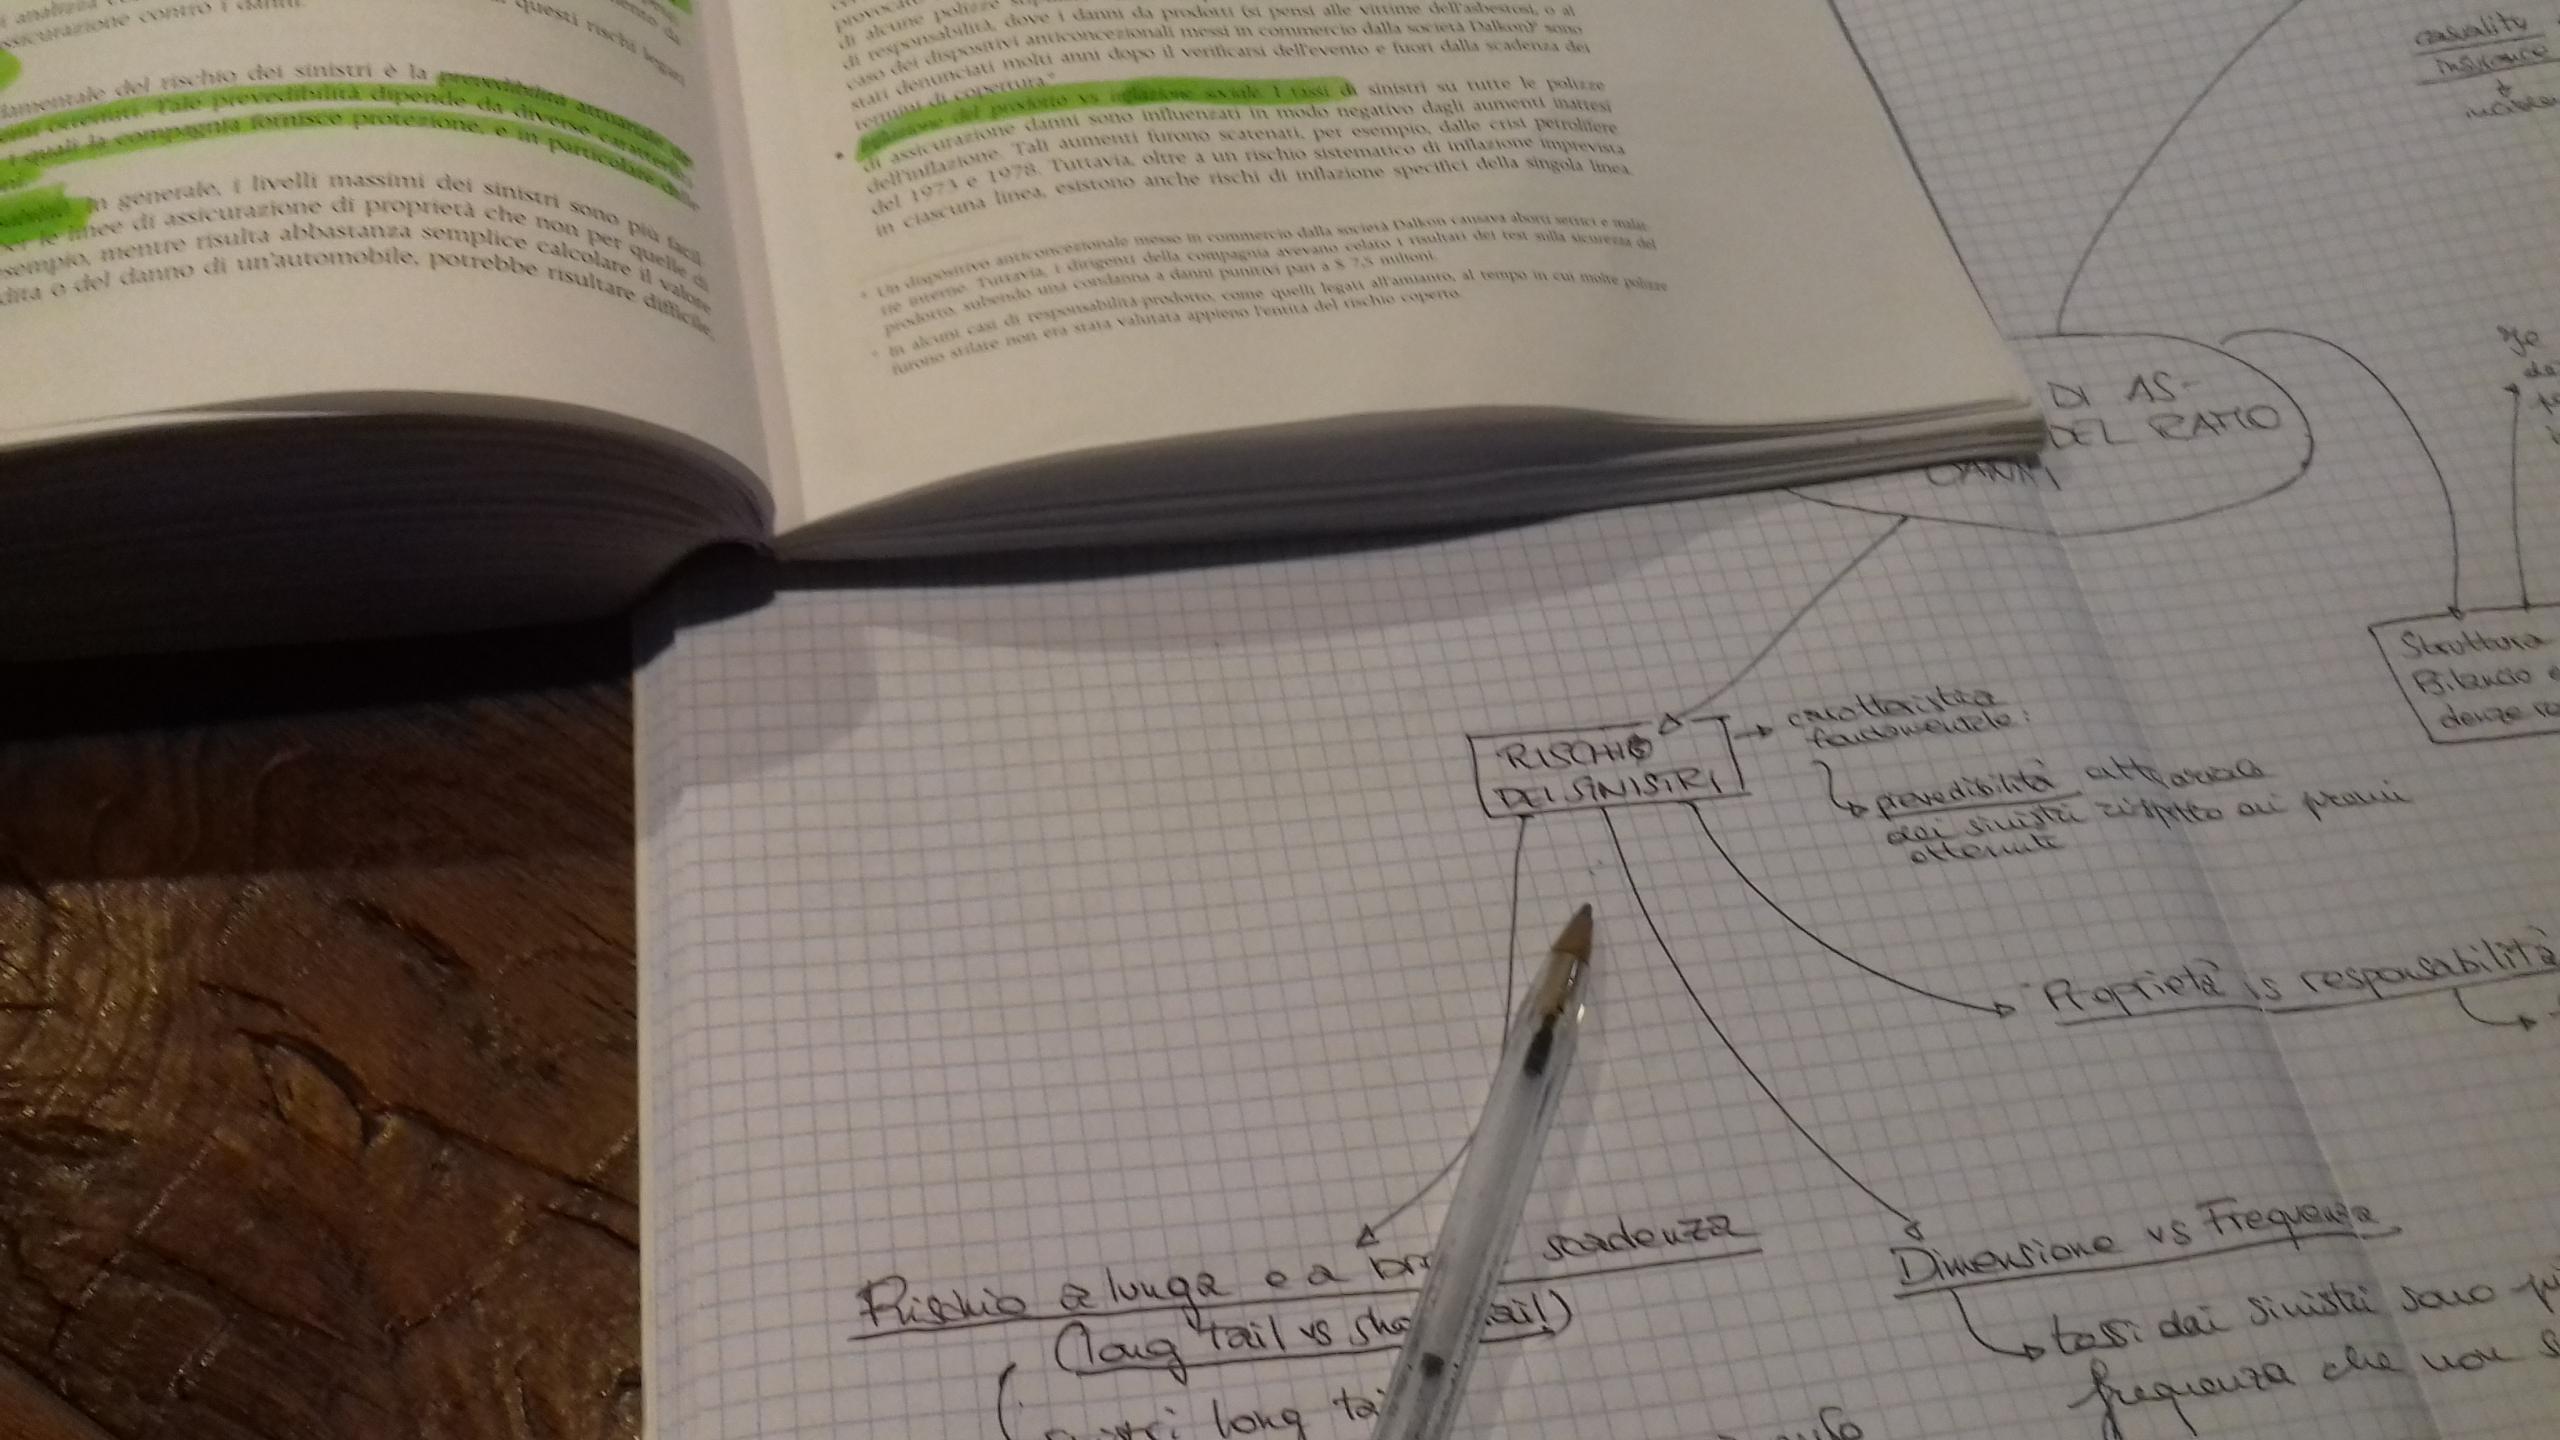 assicurazione contro i danni.
questi rischi legati
damentale del rischio dei sinistri è la prevedibilità attuariale
ottenuti. Tale prevedibilità dipende da diverse caratteri-
i quali la compagnia fornisce protezione, e in particolare
In generale, i livelli massimi dei sinistri sono più facil
linee di assicurazione di proprietà che non per quelle di
esempio, mentre risulta abbastanza semplice calcolare il valore
dita o del danno di un'automobile, potrebbe risultare difficile,
provocate
di alcune polizze
di responsabilità, dove i danni da prodotti (si pensi alle vittime dell'asbestosi, o al
caso dei dispositivi anticoncezionali messi in commercio dalla società Dalkon) sono
stati denunciati molti anni dopo il verificarsi dell'evento e fuori dalla scadenza dei
termini di copertura.
• Inflazione del prodotto vs inflazione sociale. I tassi di sinistri su tutte le polizze
di assicurazione danni sono influenzati in modo negativo dagli aumenti inattesi
dell'inflazione. Tali aumenti furono scatenati, per esempio, dalle crisi petrolifere
del 1973 e 1978. Tuttavia, oltre a un rischio sistematico di inflazione imprevista
in ciascuna linea, esistono anche rischi di inflazione specifici della singola linea.
Un dispositivo anticoncezionale messo in commercio dalla società Dalkon causava aborti settici e malat-
tie interne. Tuttavia, i dirigenti della compagnia avevano celato i risultati dei test sulla sicurezza del
prodotto, subendo una condanna a danni punitivi pari a $ 7,5 milioni.
In alcuni casi di responsabilità-prodotto, come quelli legati all'amianto, al tempo in cui molte polizze
furono stilate non era stata valutata appieno l'entità del rischio coperto.
casuality
insurance
DI AS-
DEL RAMO
DANNI
Struttura
Bilancio e
denze
RISCHIO
DEI SINISTRI
caratteristica
fondamentale:
prevedibilità attuariale
dei sinistri rispetto ai premi
ottenuti
Proprietà vs responsabilità
Rischio a lunga e a scadenza
(long tail vs tail!)
Dimensione vs Frequenza
tassi dei sinistri sono
frequenza che non
long